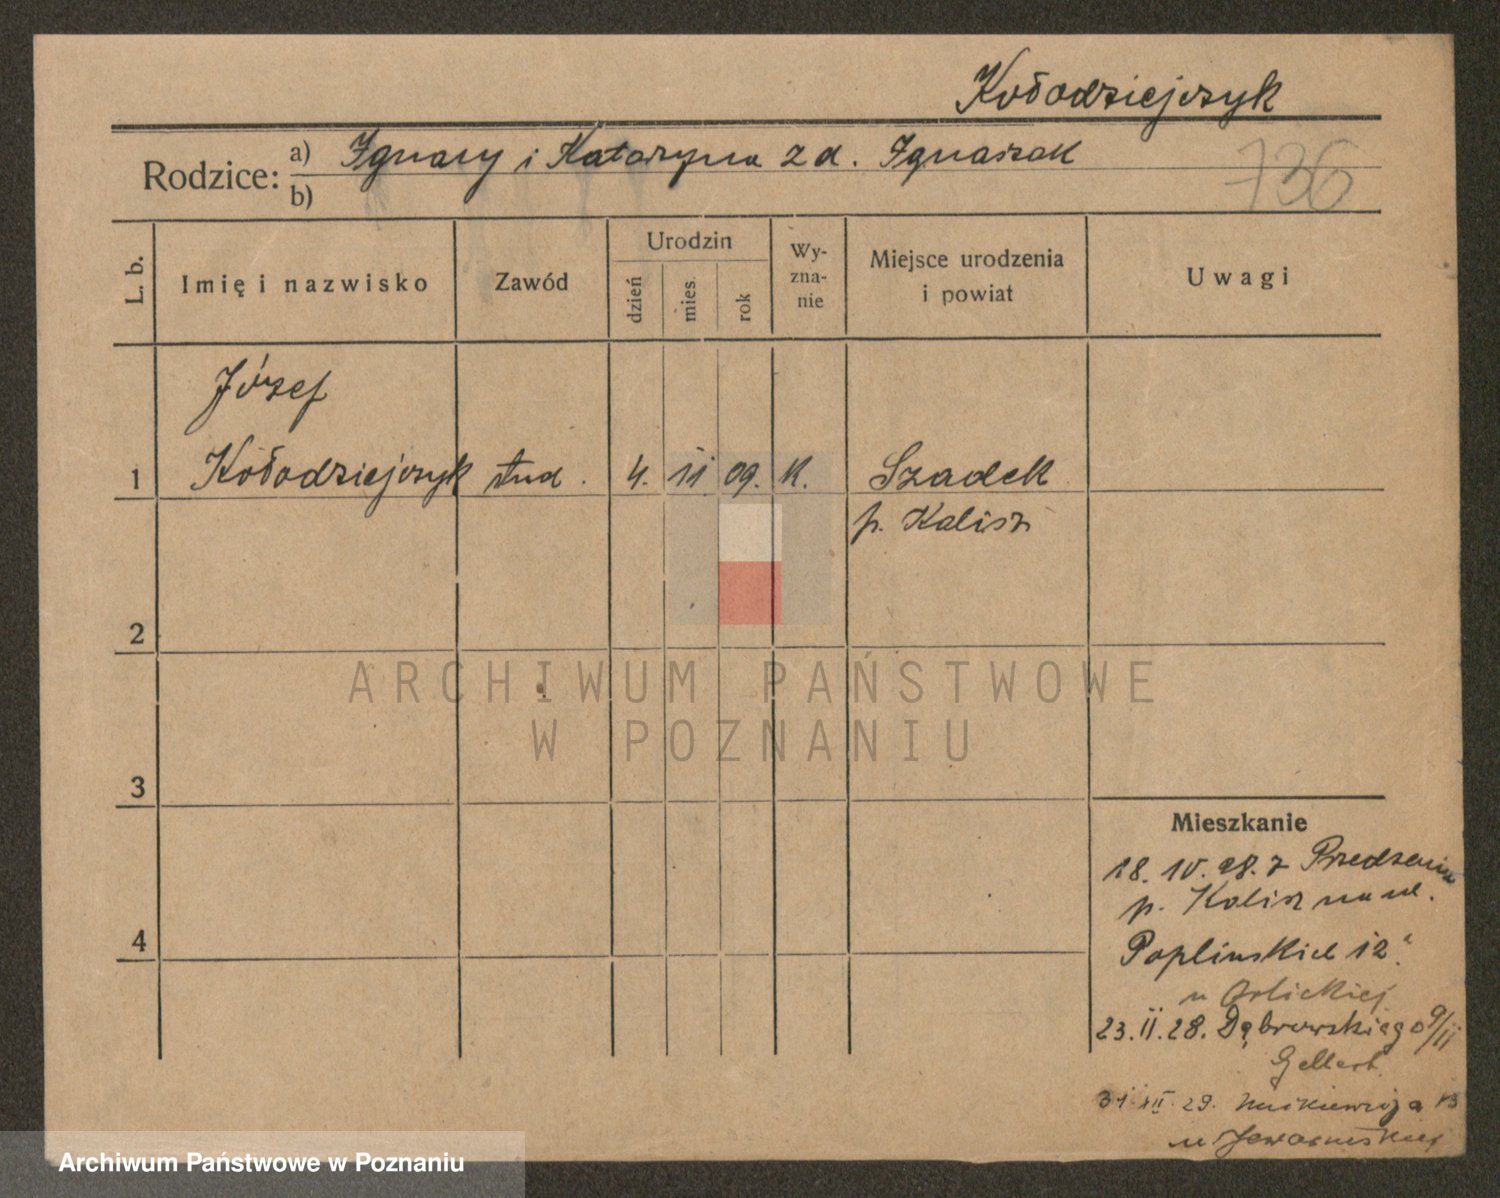 Kołodziejczyk
Rodzice: a) Ignacy i Katarzyna z d. Ignaszak
b)
736
L. b.
Imię i nazwisko
Zawód
Urodzin
dzień
mies.
rok
Wy-
zna-
nie
Miejsce urodzenia
i powiat
Uwagi
Józef
1 Kołodziejczyk stud. 4. 11 09. K. Szadek
p. Kalisz
2
ARCHIWUM PAŃSTWOWE
W POZNANIU
3
Mieszkanie
18. 10. 28. z
p. Kalisz na ul.
4
Poplińskich 12a
u Orlickiej
23. II. 28. Dąbrowskiego 9/II
Gellert
31 III. 29. Mickiewicza 13
u
Archiwum Państwowe w Poznaniu